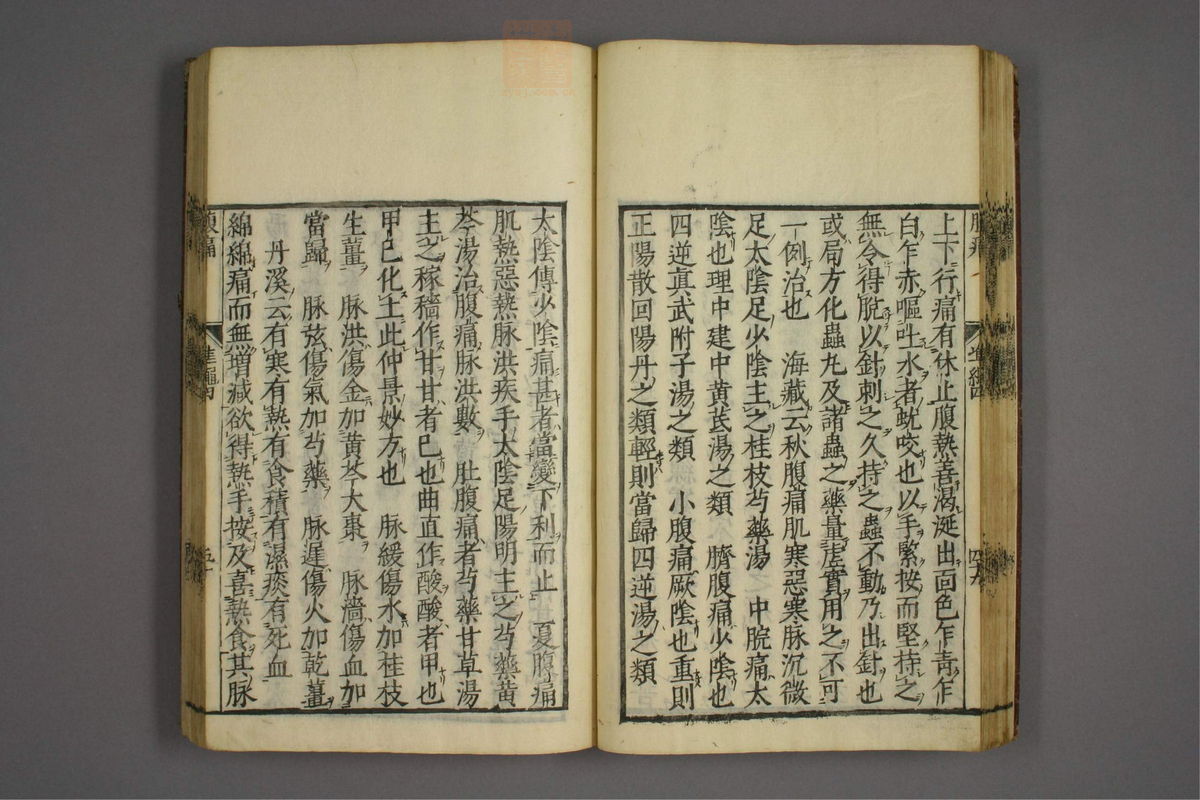 上下行痛有休止腹熱善渴涎出面色乍青乍
白乍赤嘔吐水者蛟咬也以手緊按而堅持之
無令得脫以針刺之久持之蟲不動乃出針也
或局方化蟲丸及諸蟲之藥量虛實用之不可
一例治也　海藏云秋腹痛肌寒惡寒脉沉微
足太陰足少陰主之桂枝芍藥湯　中脘痛太
陰也理中建中黃芪湯之類　臍腹痛少陰也
四逆真武附子湯之類　小腹痛厥陰也重則
正陽散回陽丹之類輕則當歸四逆湯之類
太陰傳少陰痛甚者當變下利而止　夏腹痛
肌熱惡熱脉洪疾手太陰足陽明主之芍藥黃
芩湯治腹痛脉洪數　肚腹痛者芍藥甘草湯
主之稼穡作甘甘者巳也曲直作酸酸者甲也
甲巳化土此仲景妙方也　脉緩傷水加桂枝
生薑　脉洪傷金加黃芩大棗　脉濇傷血加
當歸　脉弦傷氣加芍藥　脉遲傷火加乾薑
丹溪云有寒有熱有食積有濕痰有死血
綿綿痛而無增減欲得熱手按及喜熱食其脉